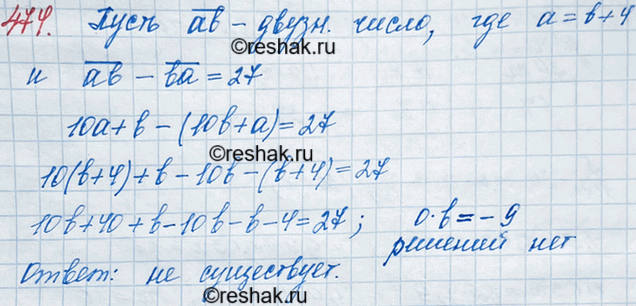 474. Пусть ab̅ – двузн. число, где a = b + 4
©reshak.ru
и ab̅ – ba̅ = 27
10a + b – (10b + a) = 27
©reshak.ru
10(b+4) + b – 10b – (b+4) = 27
10b + 40 + b – 10b – b – 4 = 27; 0·b = –9
решений нет
©reshak.ru
Ответ: не существует.